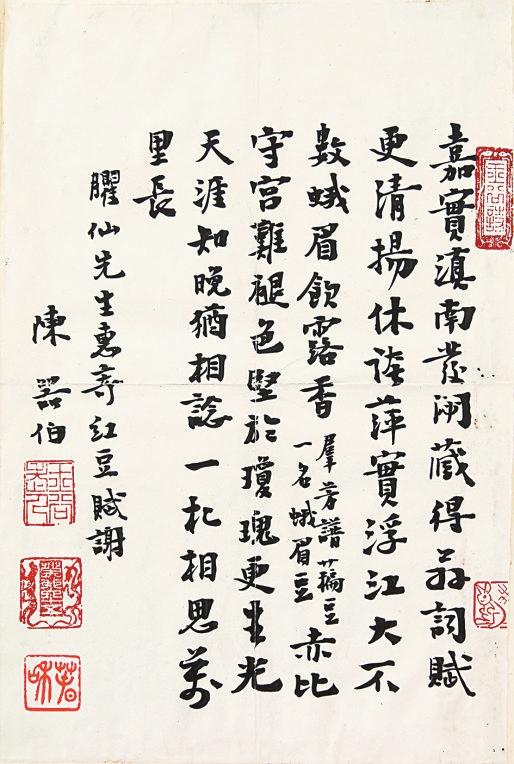 嘉實滇南發閟藏得詞賦
更清揚休誇萍實浮江大不
數蛾眉飲露香
羣芳譜藊豆
一名蛾眉豆
赤比
守宮難褪色堅於瓊瑰更生光
天涯知晚猶相諗一札相思萬
里長
臞仙先生惠寄紅豆賦謝
陳器伯